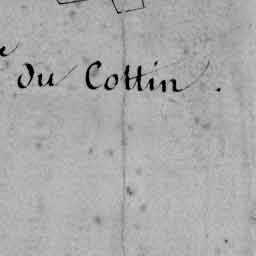 du Cottin.